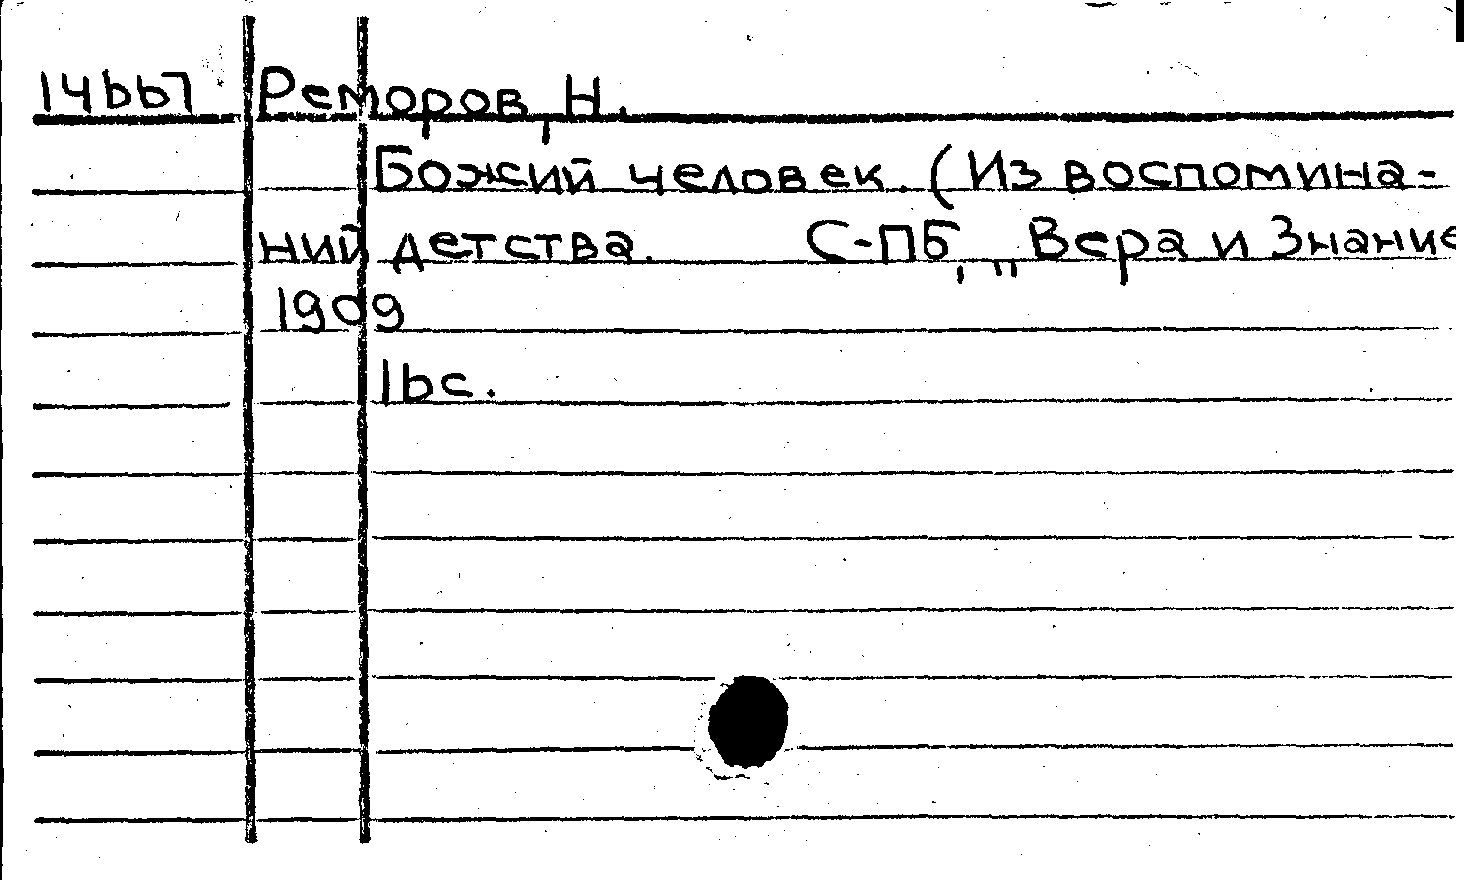 14667 Реморов, Н.
Божий человек. (Из воспомина-
ний детства. С-ПБ, „Вера и Знание
1909
16с.